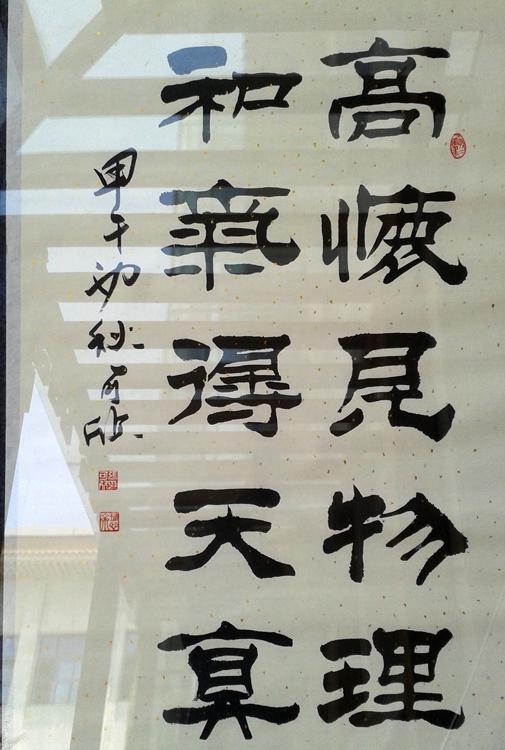 高懷見物理
和氣得天真
甲午初秋可欣